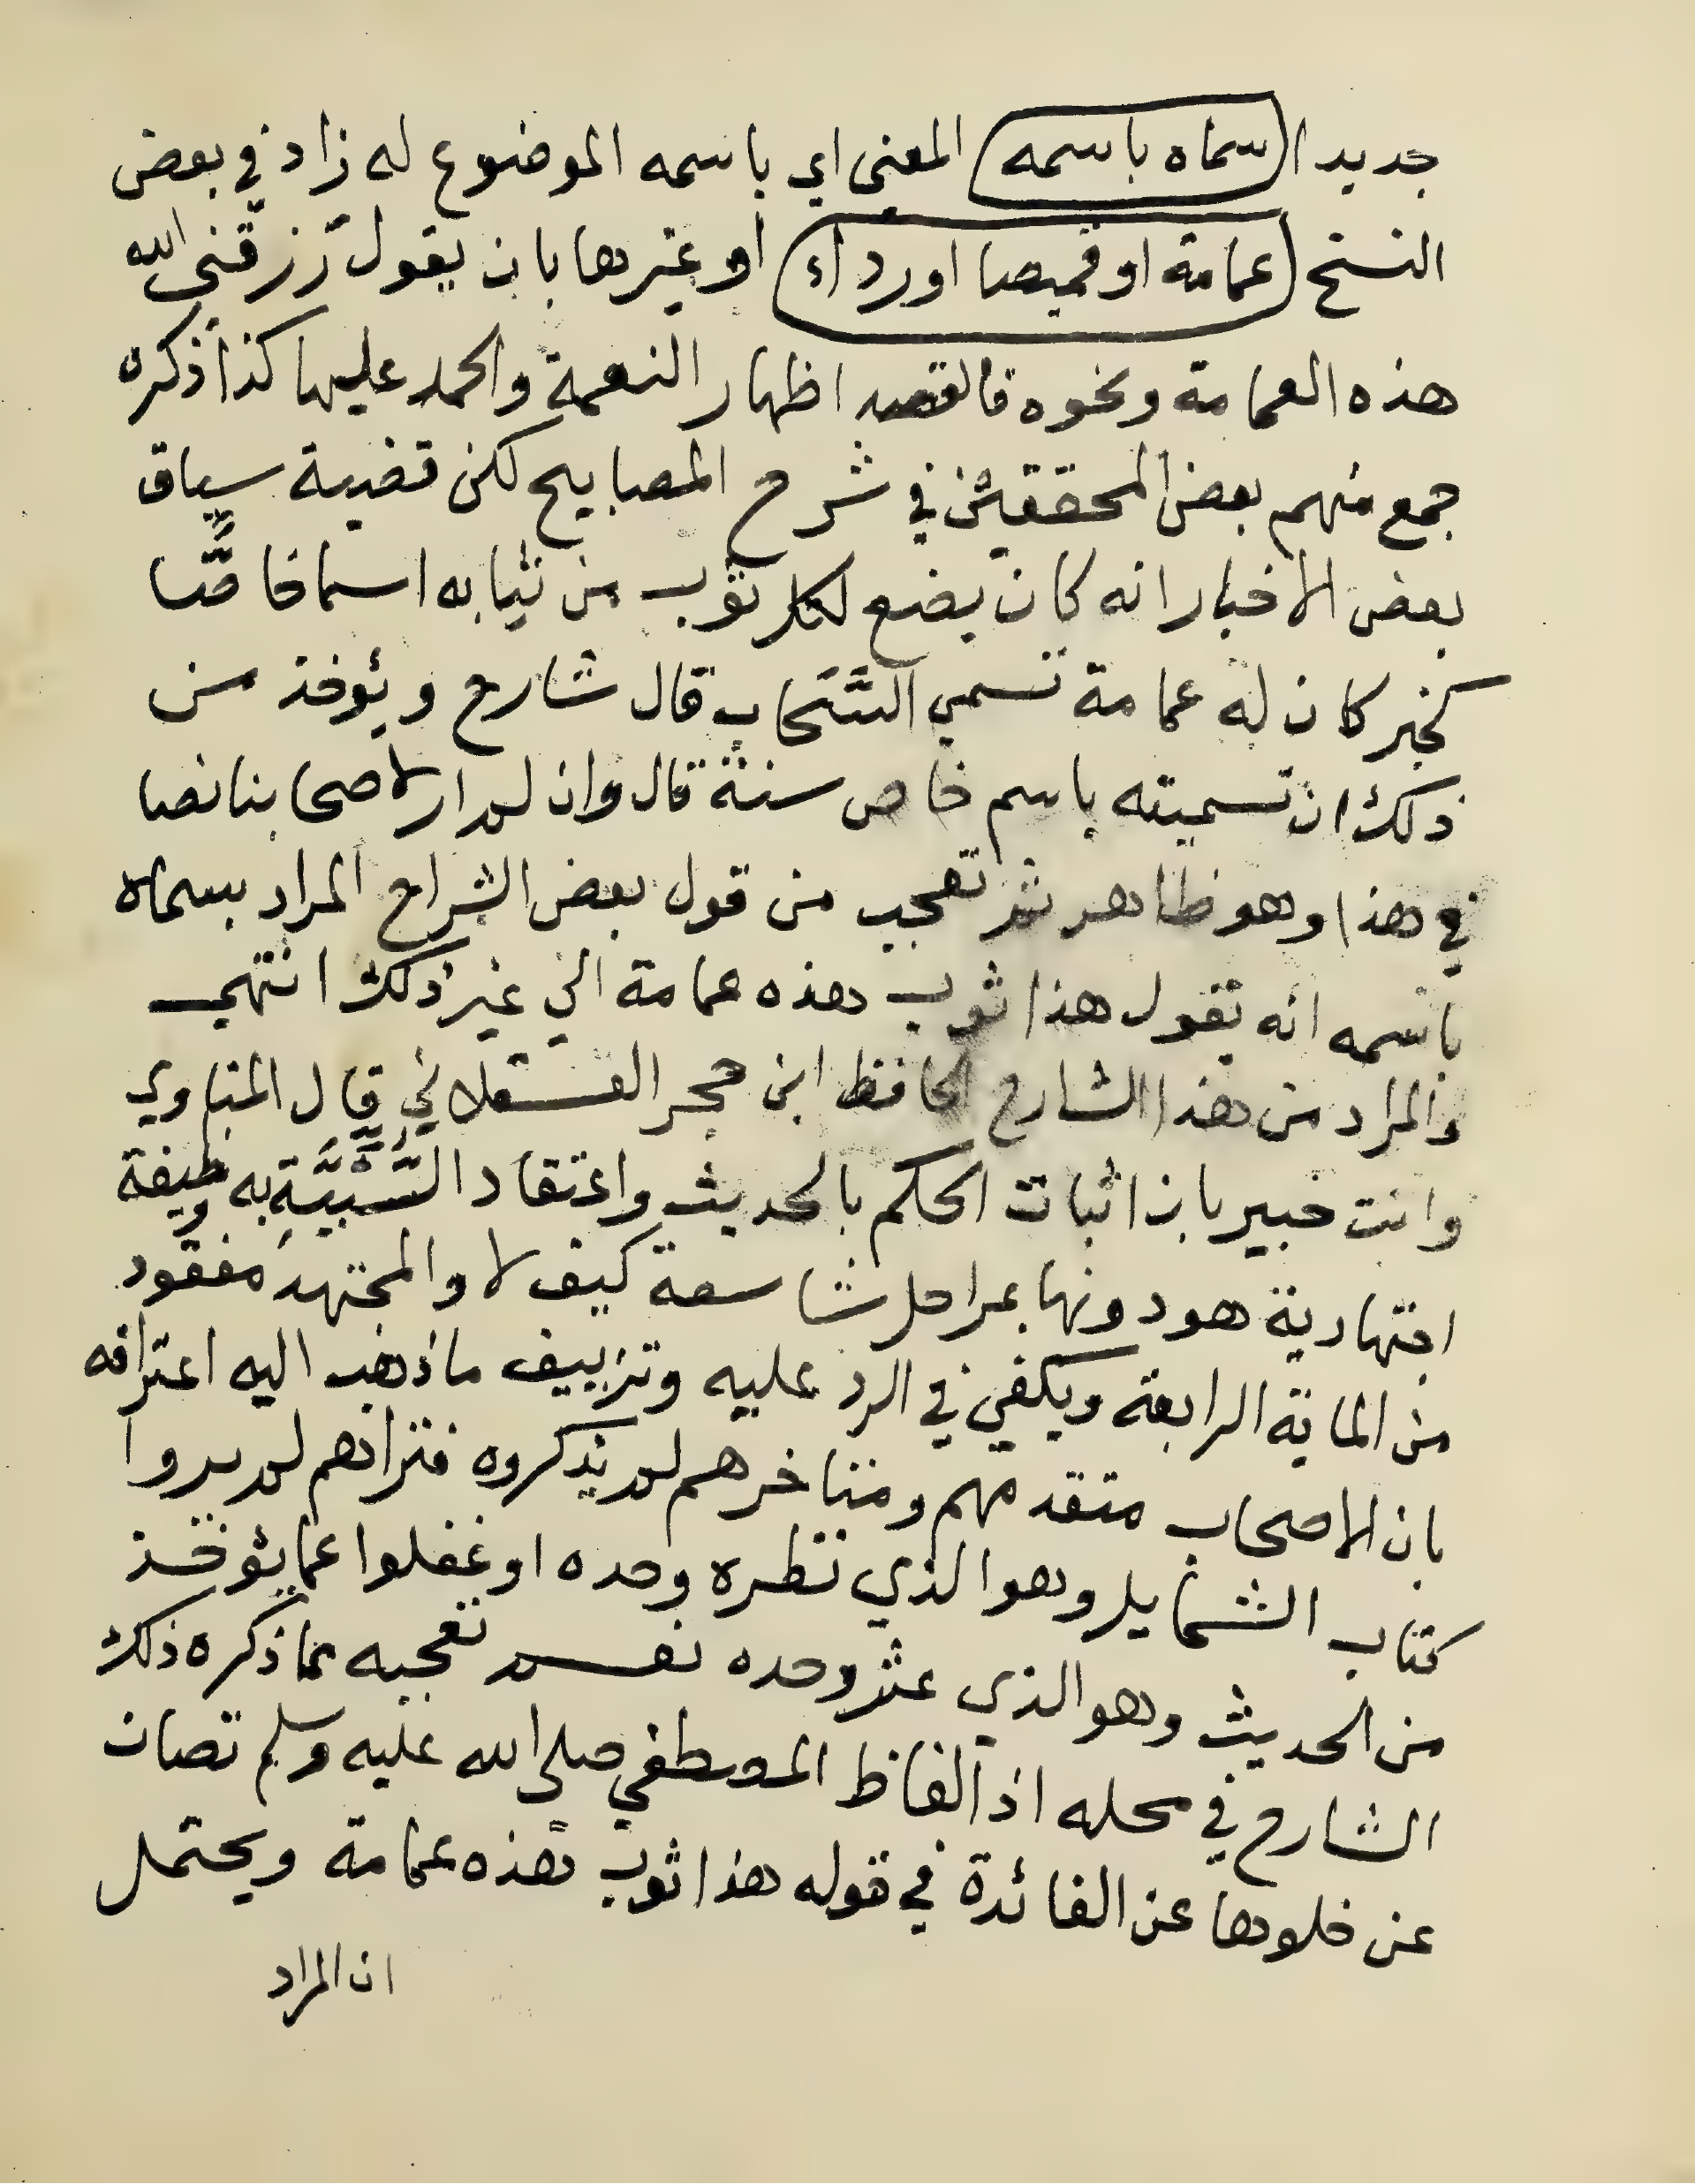 جديدا سماه باسمه المعنى اي باسمه الموضوع له زاد في بعض
النسخ عمامة او قميصا او رداء او غيرها بان يقول رزقني الله
هذه العمامة ونحوه فالقصد اظهار النعمة والحمد عليها كذا ذكره
جمع منهم بعض المحققين في شرح المصابيح لكن قضية سياق
بعض الاخبار انه كان يضع لكل ثوب من ثيابه اسما خاصًّا
كخبر كان له عمامة تسمي السَّحَاب قال شارح ويؤخذ من
ذلك ان تسميته باسم خاص سنة قال وان لم ار لاصحابنا نصا
في هذا وهو ظاهر ثم تعجب من قول بعض الشراح المراد بسماه
باسمه انه يقول هذا ثوب هذه عمامة الي غير ذلك انتهي
والمراد من هذا الشارح الحافظ ابن حجر العسقلاني قال المناوي
وانت خبير بان اثبات الحكم بالحديث واعتقاد السُّنِّيَّةِ به وظيفة
اجتهادية هو دونها بمراحل شاسعة كيف لا والمجتهد مفقود
من الماية الرابعة ويكفي في الرد عليه وتزييف ما ذهب اليه اعترافه
بان الاصحاب متقدمهم ومتاخرهم لم يذكروه فتراهم لم يروا
كتاب الشمايل وهو الذي نظره وحده او غفلوا عما يؤخذ
من الحديث وهو الذي عثر وحده نعم تعجبه مما ذكره ذلك
الشارح في محله اذ الفاظ المصطفي صلى الله عليه وسلم تصان
عن خلوها عن الفائدة في قوله هذا ثوب هذه عمامة ويحتمل
ان المراد